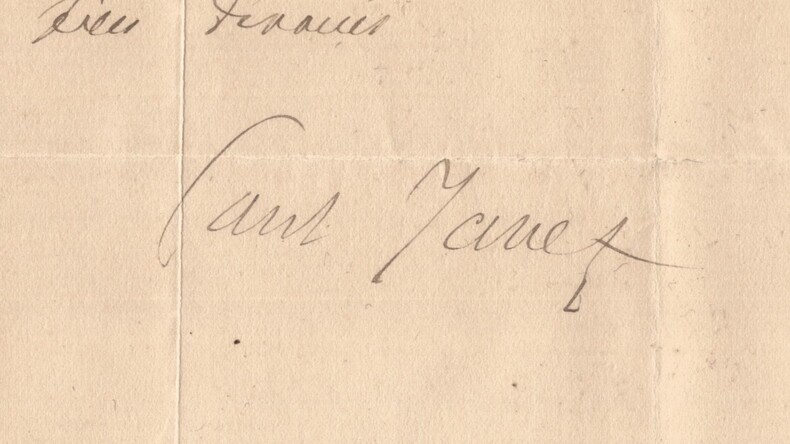 bien dévoué
Paul Janet